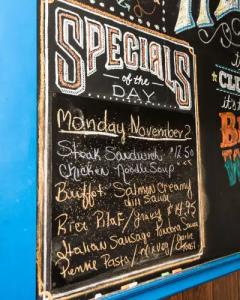 SPECIALS
of the
DAY
Monday November 2
Steak Sandwich $12.50
Chicken Noodle Soup
Buffet Salmon Creamy
Dill Sauce
Rice Pilaf / gravy $14.95
Italian Sausage Sauce
Penne Pasta / Garlic
Toast
in
CLU
it's